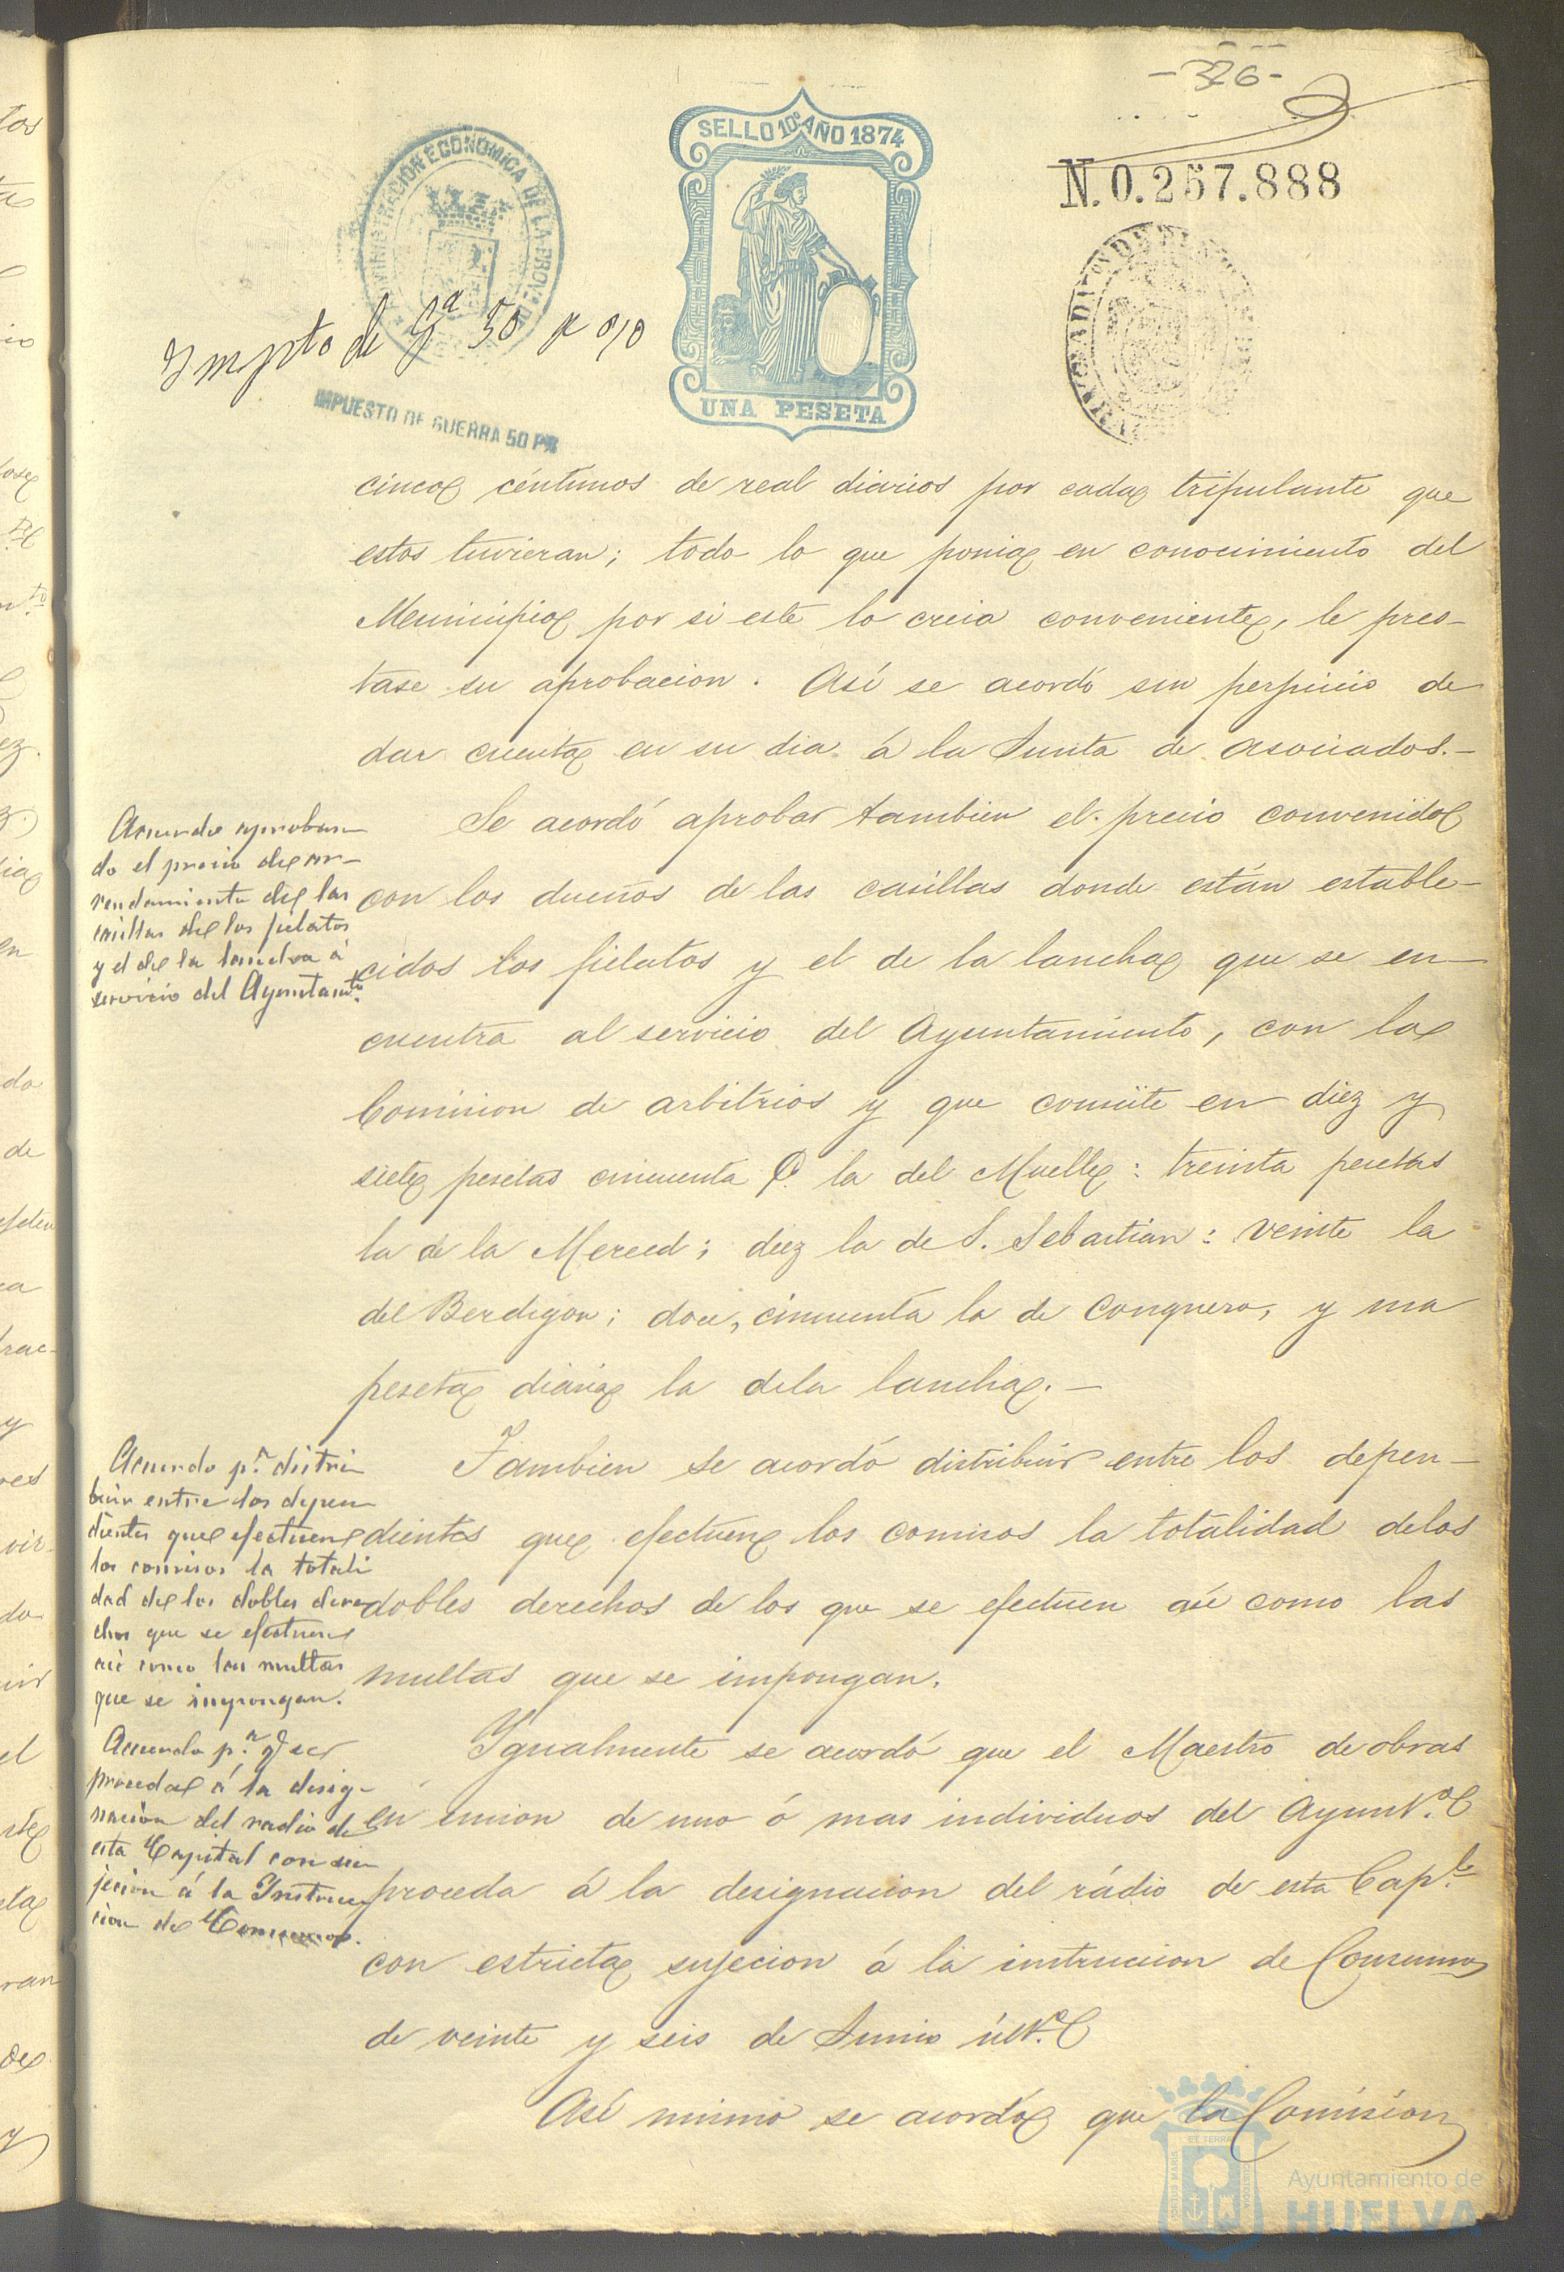 -326-
SELLO 10º AÑO 1874
UNA PESETA
N.0.257.888
ADMINISTRACION ECONOMICA DE LA PROV.
Impto de Gª 50 p 0/0
IMPUESTO DE GUERRA 50 PR
cinco céntimos de real diarios por cada tripulante que
estos tuvieran; todo lo que ponia en conocimiento del
Municipio por si este lo creia conveniente, le pres-
tase su aprobacion. Así se acordó sin perjuicio de
dar cuenta en su dia á la Junta de asociados.-
Acuerdo aproban-
do el precio de ar-
rendamiento de las
casillas de los fielatos
y el de la lancha á
servicio del Ayuntamto.
Se acordó aprobar tambien el precio convenido
con los dueños de las casillas donde están estable-
cidos los fielatos y el de la lancha que se en-
cuentra al servicio del Ayuntamiento, con la
Comision de arbitrios y que consiste en diez y
siete pesetas cincuenta C. la del Muelle: treinta pesetas
la de la Merced; diez la de S. Sebastian: veinte la
del Berdigon; doce, cincuenta la de Conquero, y una
peseta diaria la dela lancha.-
Acuerdo p.ª distri
buir entre los depen
dientes que efectuen
los comisos la totali
dad de los dobles dere
chos que se efectuen
asi como las multas
que se impongan.
Tambien se acordó distribuir entre los depen-
dientes que efectuen los comisos la totalidad delos
dobles derechos de los que se efectuen así como las
multas que se impongan.
Acuerdo p.ª q. se
proceda á la desig-
nacion del radio de
esta Capital con su
jecion á la Instruc
cion de Consumos.
Igualmente se acordó que el Maestro de obras
en union de uno ó mas individuos del Ayunt.º
proceda á la designacion del rádio de esta Cap.l
con estricta sujecion á la instruccion de Consumos
de veinte y seis de Junio últ.º
Así mismo se acordó que la Comision
Ayuntamiento de
HUELVA